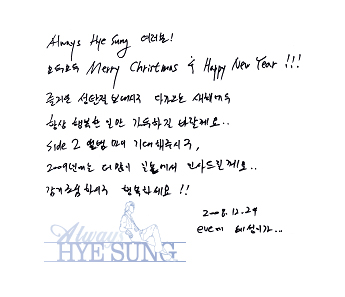 Always Hye Sung 여러분!
모두모두 Merry Christmas & Happy New Year !!!
즐거운 성탄절 보내시고 다가오는 새해에도
항상 행복한 일만 가득하길 바랄께요..
Side 2 앨범 많이 기대해주시구,
2009년에는 더 많이 일들에서 인사드릴께요..
감기조심하시구 행복하세요 !!
2008.12.24
eve에 혜성이가...
Always
HYE SUNG